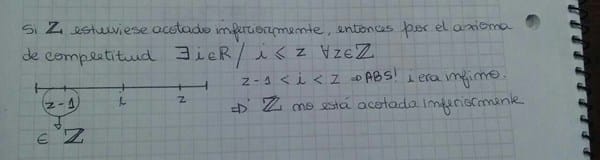 Si Z estuviese acotado inferiormente, entonces por el axioma
de completitud ∃ i ∈ R / i ≤ z ∀z ∈ Z
z - 1 < i < z ⇒ ABS! i era ínfimo.
z-1 i z
⇒ Z no está acotada inferiormente
∈ Z